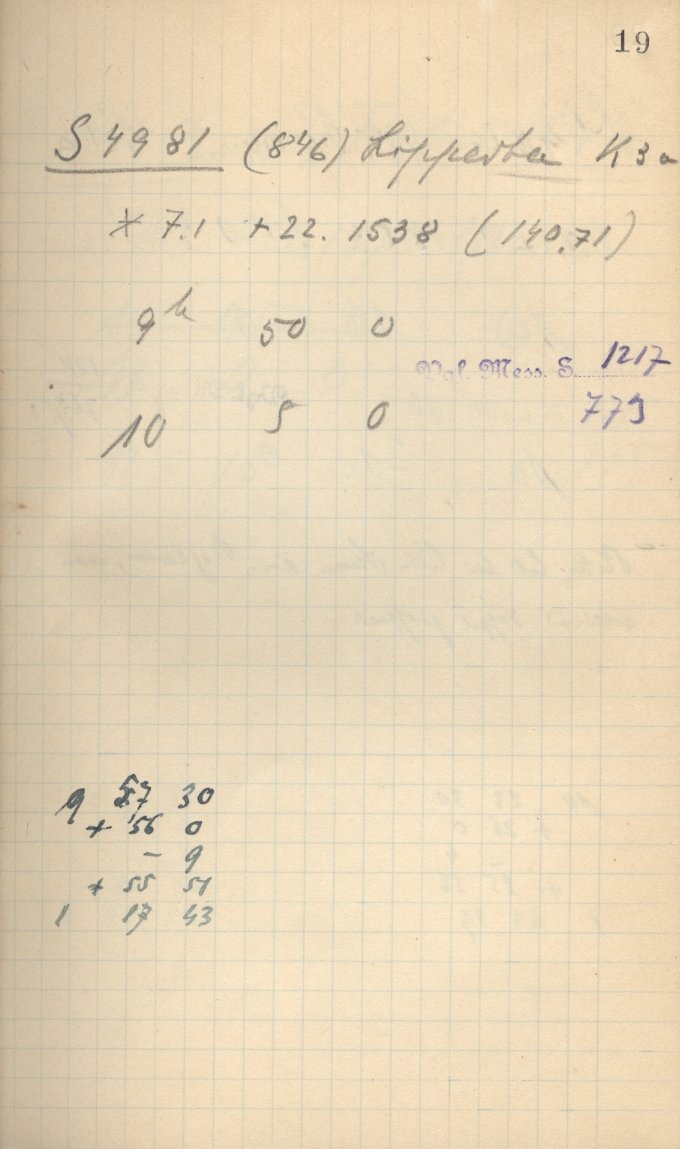 19
S 4981 (846) Lipperta K 3a
* 7.1 + 22. 1538 (140.71)
9h 50 0
Vgl. Mess. S. 1217
10 5 0
773
9 57 30
+ 56 0
- 9
+ 55 51
1 17 43